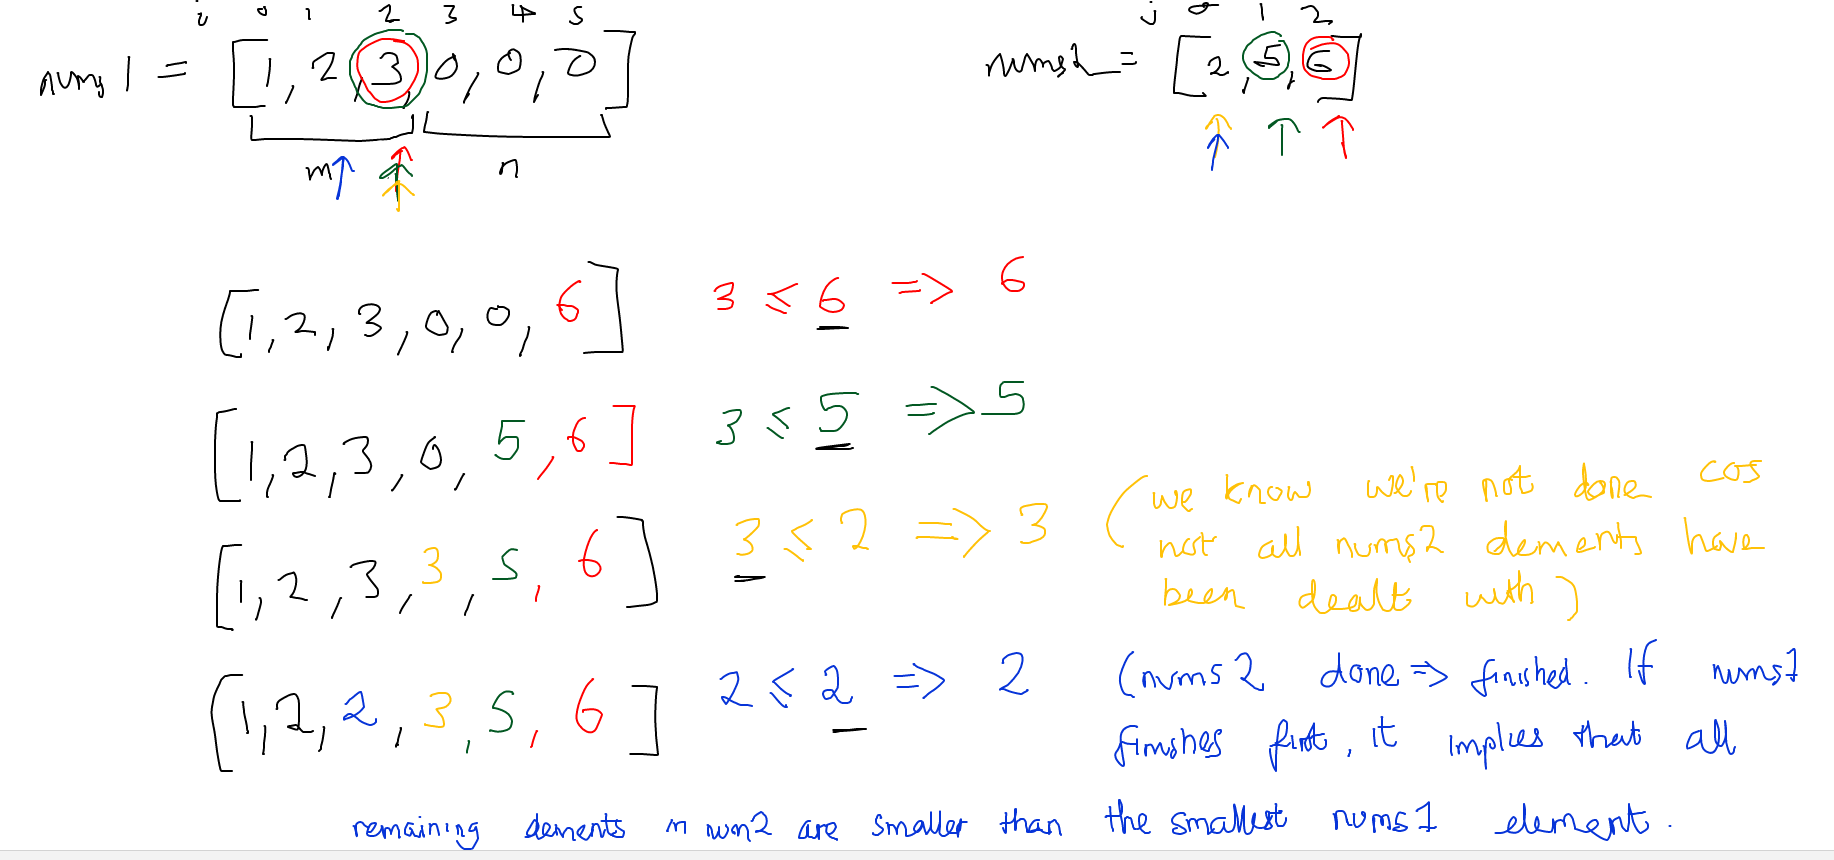 i 0 1 2 3 4 5
j 0 1 2
nums1 = [1, 2, 3, 0, 0, 0]
nums2 = [2, 5, 6]
m n
[1, 2, 3, 0, 0, 6] 3 ≤ 6 => 6
[1, 2, 3, 0, 5, 6] 3 ≤ 5 => 5
[1, 2, 3, 3, 5, 6] 3 ≤ 2 => 3 (we know we're not done cos
not all nums2 elements have
been dealt with)
[1, 2, 2, 3, 5, 6] 2 ≤ 2 => 2 (nums2 done => finished. If nums1
finishes first, it implies that all
remaining elements in num2 are smaller than the smallest nums1 element.